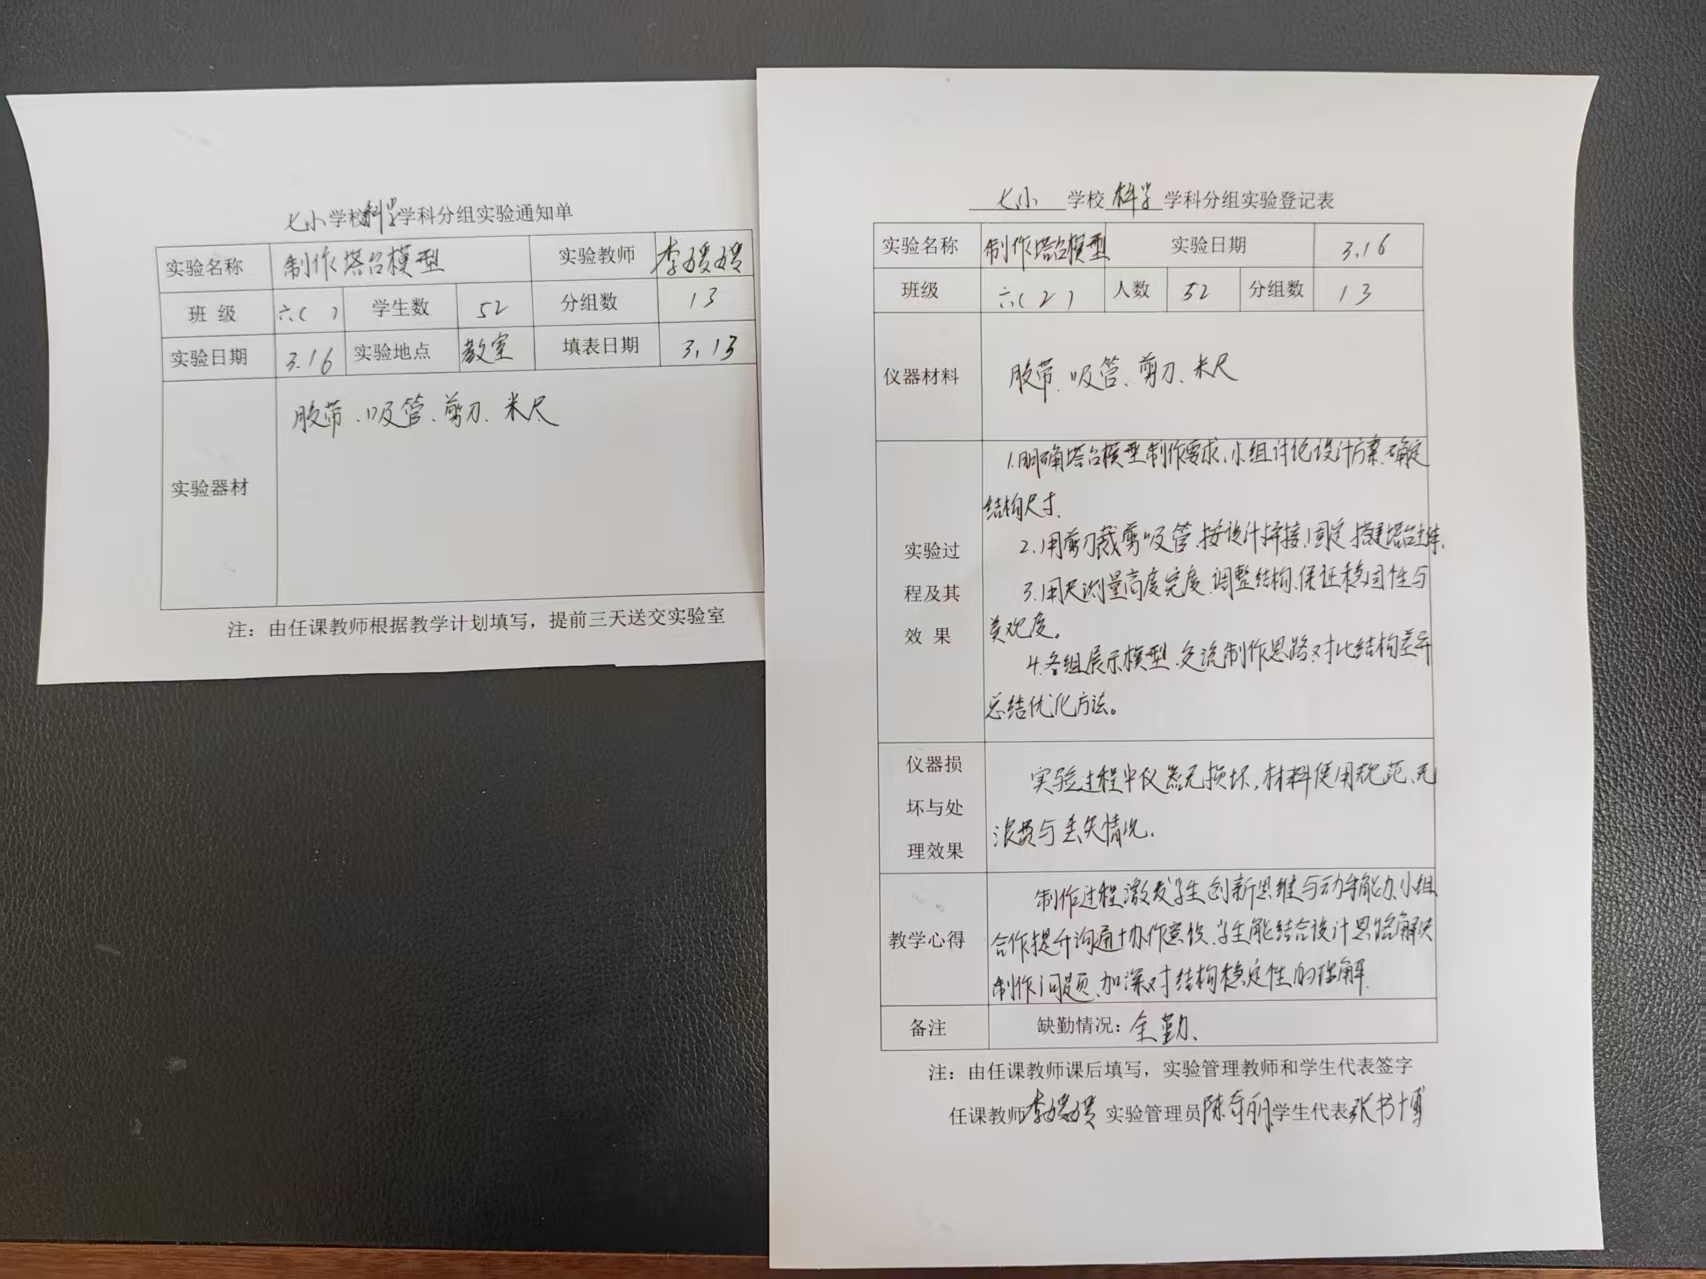 七小学校科学学科分组实验通知单
实验名称 制作塔台模型 实验教师 李媛媛
班 级 六( ) 学生数 52 分组数 13
实验日期 3.16 实验地点 教室 填表日期 3.13
实验器材 胶带、吸管、剪刀、米尺
注：由任课教师根据教学计划填写，提前三天送交实验室
七小 学校 科学 学科分组实验登记表
实验名称 制作塔台模型 实验日期 3.16
班级 六(2) 人数 52 分组数 13
仪器材料 胶带、吸管、剪刀、米尺
实验过
程及其
效 果
1.明确塔台模型制作要求，小组讨论设计方案、确定
结构尺寸.
2.用剪刀裁剪吸管、按设计拼接、固定、搭建塔台主体.
3.用尺测量高度宽度、调整结构、保证稳固性与
美观度。
4.各组展示模型、交流制作思路、对比结构差异
总结优化方法。
仪器损
坏与处
理效果
实验过程中仪器无损坏，材料使用规范、无
浪费与丢失情况.
教学心得
制作过程激发学生创新思维与动手能力、小组
合作提升沟通协作意识、学生能结合设计思路解决
制作问题、加深对结构稳定性的理解.
备注 缺勤情况：全勤.
注：由任课教师课后填写，实验管理教师和学生代表签字
任课教师李媛媛 实验管理员陈奇丽 学生代表张书博